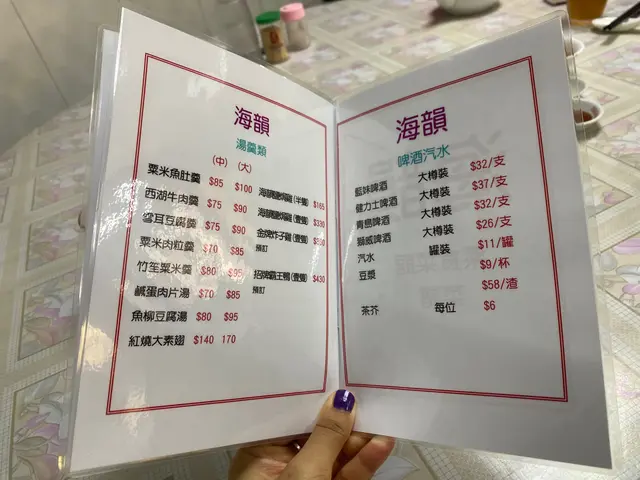 海韻
湯羹類
(中) (大)
粟米魚肚羹 $85 $100
西湖牛肉羹 $75 $90
雪耳豆腐羹 $75 $90
粟米肉粒羹 $70 $85
竹笙粟米羹 $80 $95
鹹蛋肉片湯 $70 $85
魚柳豆腐湯 $80 $95
紅燒大素翅 $140 170
(半隻) $165
(壹隻) $330
金牌炸子雞 (壹隻)
預訂
招牌霸王鴨 (壹隻) $430
預訂
海韻
啤酒汽水
藍妹啤酒 大樽裝 $32/支
健力士啤酒 大樽裝 $37/支
青島啤酒 大樽裝 $32/支
獅威啤酒 大樽裝 $26/支
汽水 罐裝 $11/罐
豆漿 $9/杯
$58/渣
茶芥 每位 $6